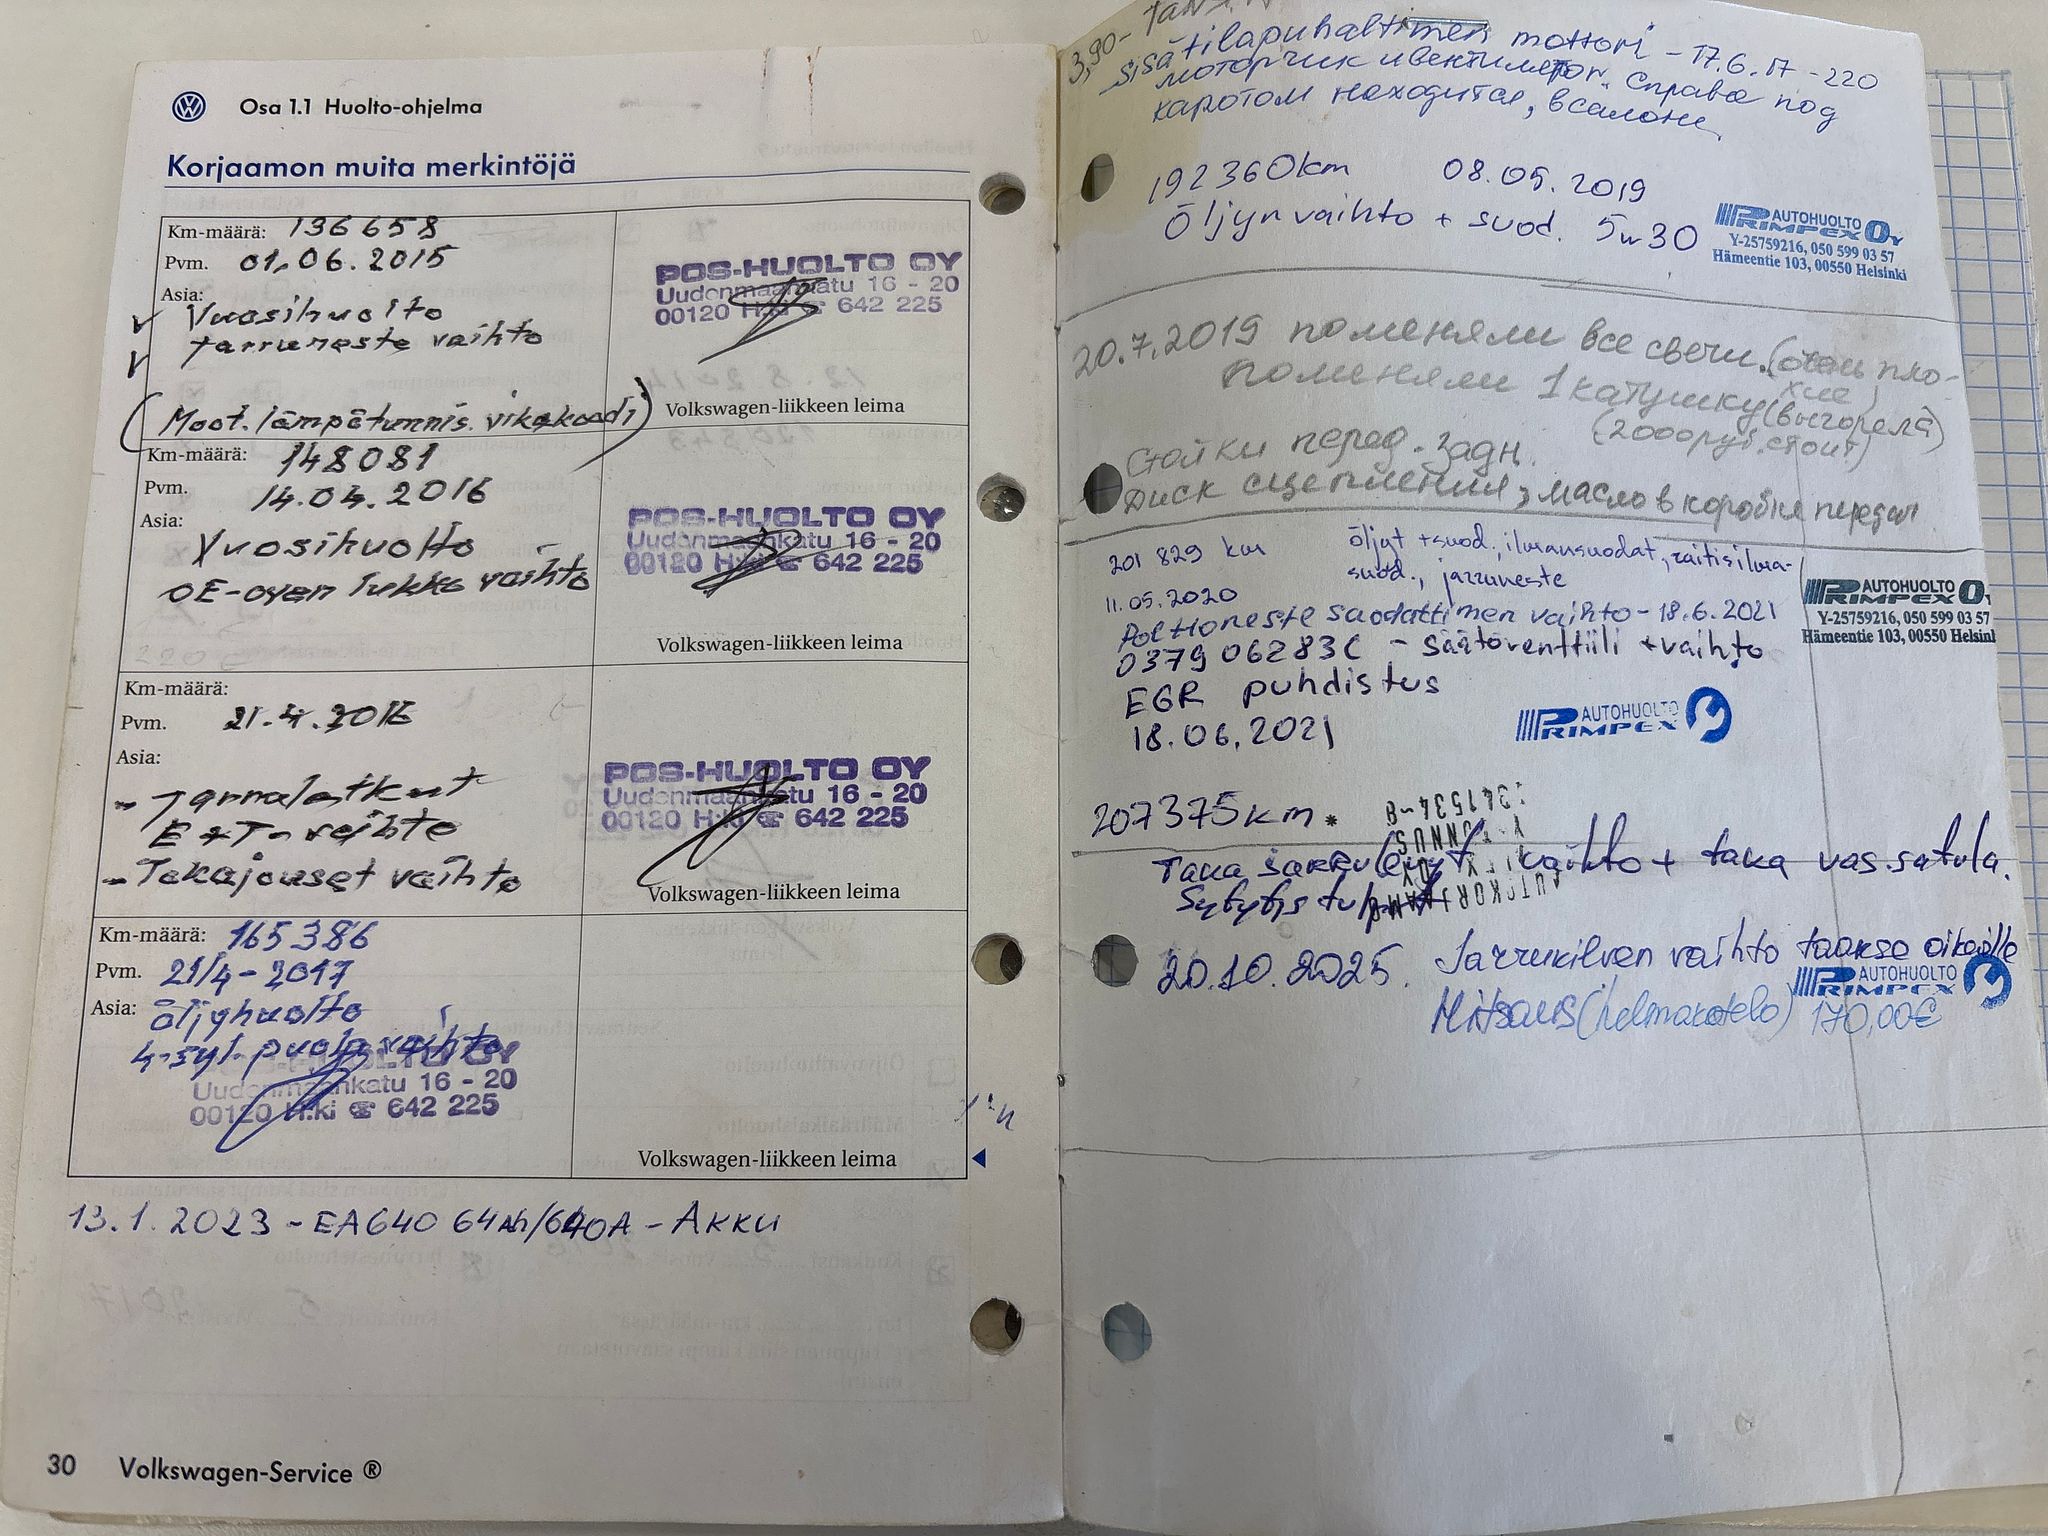 Osa 1.1 Huolto-ohjelma
Korjaamon muita merkintöjä
Km-määrä: 136658
Pvm. 01.06.2015
Asia:
Vuosihuolto
Jarruneste vaihto
(Moot. lämpötunnis. vikakoodi)
POS-HUOLTO OY
Uudenmaankatu 16 - 20
00120 H:ki ☎ 642 225
Volkswagen-liikkeen leima
Km-määrä: 148081
Pvm. 14.04.2016
Asia:
Vuosihuolto
OE-oven lukko vaihto
POS-HUOLTO OY
Uudenmaankatu 16 - 20
00120 H:ki ☎ 642 225
Volkswagen-liikkeen leima
Km-määrä:
Pvm. 21.4.2016
Asia:
- Jarrulatkut
E+T- vaihto
- Takajouset vaihto
POS-HUOLTO OY
Uudenmaankatu 16 - 20
00120 H:ki ☎ 642 225
Volkswagen-liikkeen leima
Km-määrä: 165386
Pvm. 21/4-2017
Asia: öljyhuolto
4-syl. puola vaihto
POS-HUOLTO OY
Uudenmaankatu 16 - 20
00120 H:ki ☎ 642 225
Volkswagen-liikkeen leima
13.1.2023 - EA640 64Ah/640A - Akku
30 Volkswagen-Service ®
3,90-
Sisätilapuhaltimen mottori - 17.6.17 - 220
моторчик и вентилятор. Справа под
капотом находится, в салоне
192360km 08.05.2019
Öljynvaihto + suod. 5w30
AUTOHUOLTO
PRIMPEX OY
Y-25759216, 050 599 03 57
Hämeentie 103, 00550 Helsinki
20.7.2019 поменяли все свечи. (были пло-
хие)
поменяли 1 катушку (выгорела)
(2000 руб. стоит)
Стойки перед. задн.
Диск сцепления, масло в коробке передач
201 829 km öljyt + suod., ilmansuodat, raitisilma-
suod., jarruneste
11.05.2020
AUTOHUOLTO
PRIMPEX OY
Y-25759216, 050 599 03 57
Hämeentie 103, 00550 Helsinki
Polttoneste suodattimen vaihto - 18.6.2021
037906283C - säätöventtiili + vaihto
EGR puhdistus
18.06.2021
AUTOHUOLTO
PRIMPEX
207375km.
Taka jarrulevyt vaihto + taka vas. satula.
Sytytystulpat
20.10.2025. Jarrukilven vaihto taakse oikealle
AUTOHUOLTO
PRIMPEX
Hitsaus (helmakotelo) 170,00€